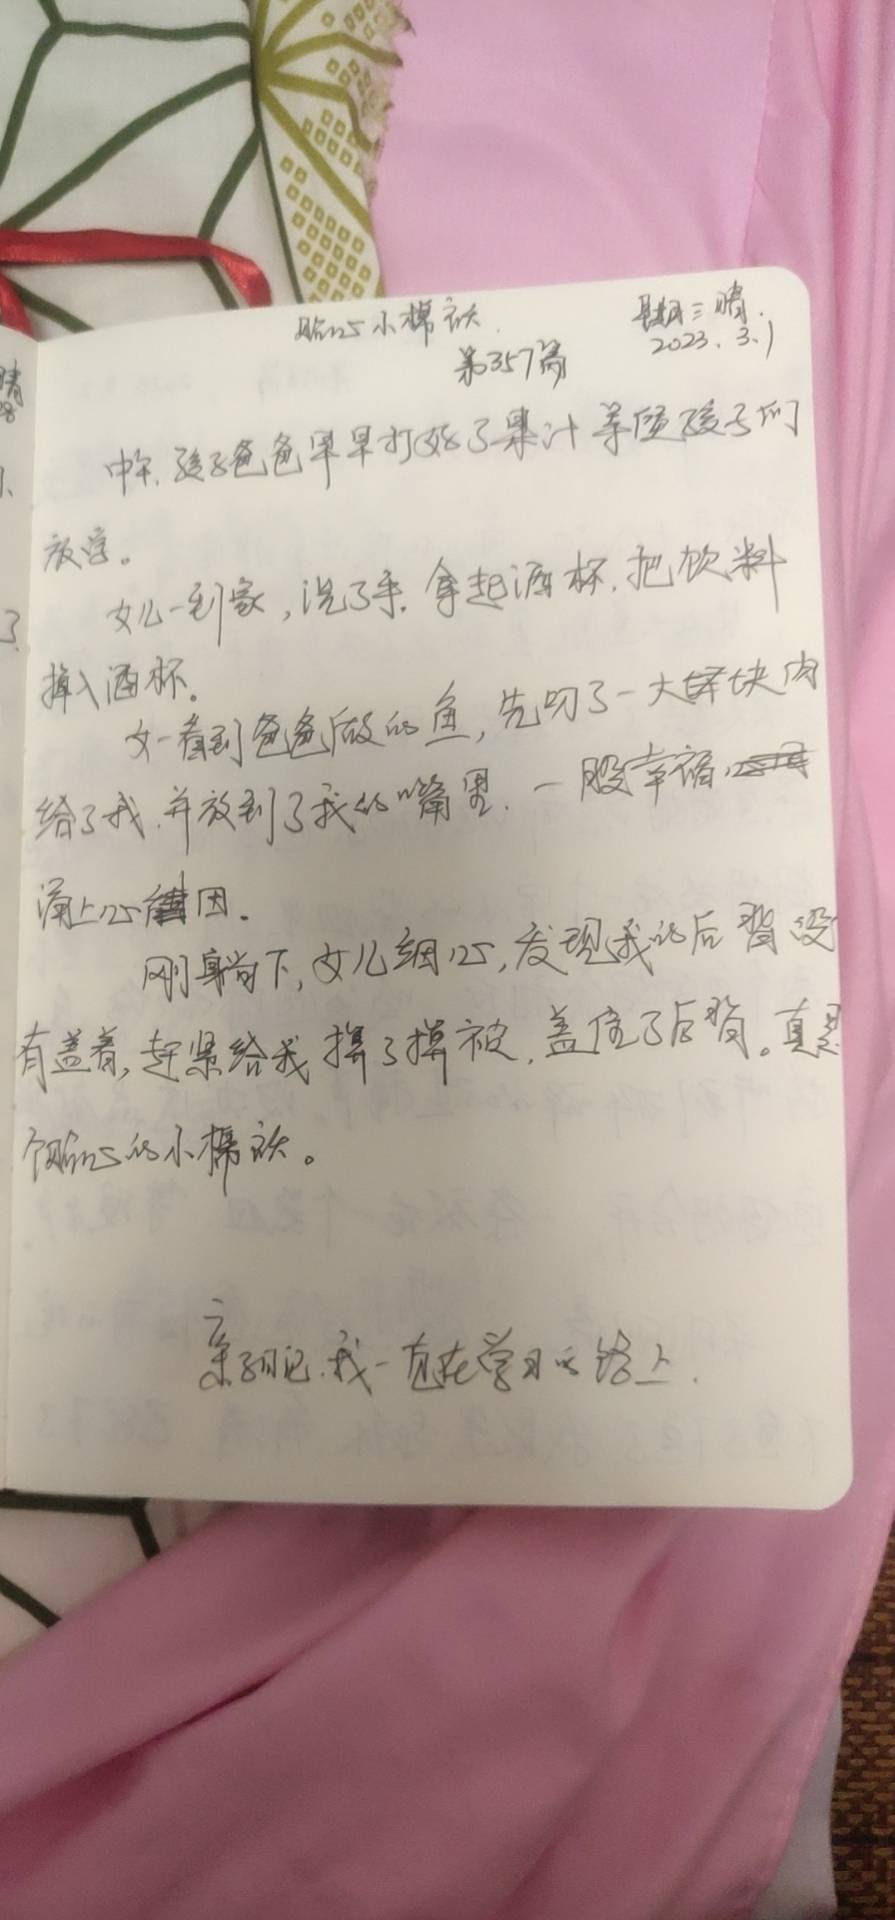 贴心小棉袄.
星期三 晴.
第357篇
2023.3.1
中午,孩子爸爸早早打好了果汁等候孩子们
放学。
女儿一到家,洗了手,拿起酒杯,把饮料
掉入酒杯。
女一看到爸爸做的鱼,先叨了一大块肉
给了我,并放到了我的嘴里.一股幸福
涌上心田.
刚躺下,女儿细心,发现我的后背没
有盖着,赶紧给我撵了撵被,盖住了后背。真是
个贴心的小棉袄。
亲子日记,我一直在学习的路上.
晴
28